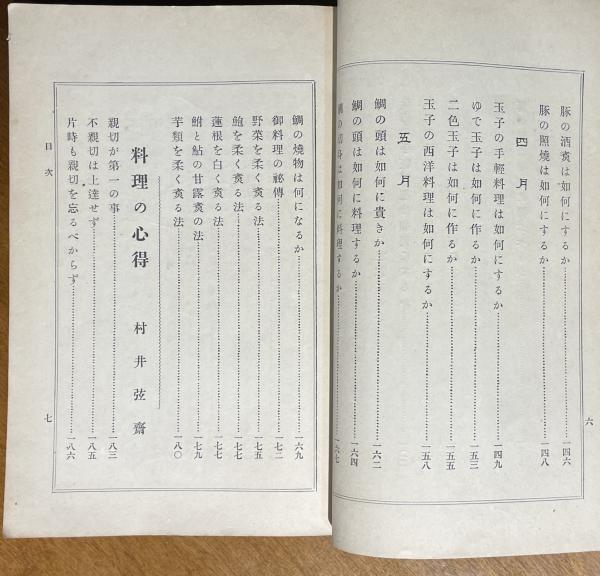 豚の酒煑は如何にするか…………一四六
豚の照燒は如何にするか…………一四八
四月
玉子の手輕料理は如何にするか…………一四九
ゆで玉子は如何に作るか…………一五三
二色玉子は如何に作るか…………一五五
玉子の西洋料理は如何にするか…………一五八
五月
鯛の頭は如何に貴きか…………一六二
鯛の頭は如何に料理するか…………一六四
は如何に料理するか…………一六七
六
鯛の燒物は何になるか…………一六九
御料理の祕傳…………一七二
野菜を柔く煑る法…………一七五
鮑を柔く煑る法…………一七七
蓮根を白く煑る法…………一七七
鮒と鮎の甘露煑の法…………一七九
芋類を柔く煑る法…………一八〇
料理の心得 村井弦齋
親切が第一の事…………一八三
不親切は上達せず…………一八五
片時も親切を忘るべからず…………一八六
目次
七